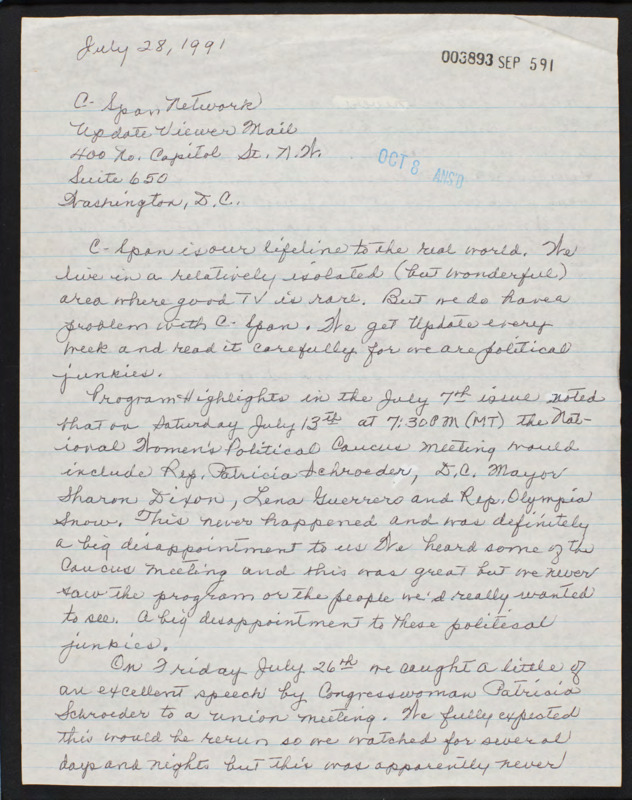 July 28, 1991
003893 SEP 591
C-Span Network
Update Viewer Mail
400 No. Capitol St. N.W.
OCT 8 ANS'D
Suite 650
Washington, D.C.
C-Span is our lifeline to the real world. We
live in a relatively isolated (but wonderful)
area where good TV is rare. But we do have a
problem with C-Span. We get Update every
week and read it carefully for we are political
junkies.
Program Highlights in the July 7th issue noted
that on Saturday July 13th at 7:30 PM (MT) the Nat-
ional Women's Political Caucus meeting would
include Rep. Patricia Schroeder, D.C. Mayor
Sharon Dixon, Lena Guerrero and Rep. Olympia
Snow. This never happened and was definitely
a big disappointment to us We heard some of the
Caucus meeting and this was great but we never
saw the program or the people we'd really wanted
to see. A big disappointment to these political
junkies.
On Friday July 26th we caught a little of
an excellent speech by Congresswoman Patricia
Schroeder to a union meeting. We fully expected
this would be rerun so we watched for several
days and nights but this was apparently never